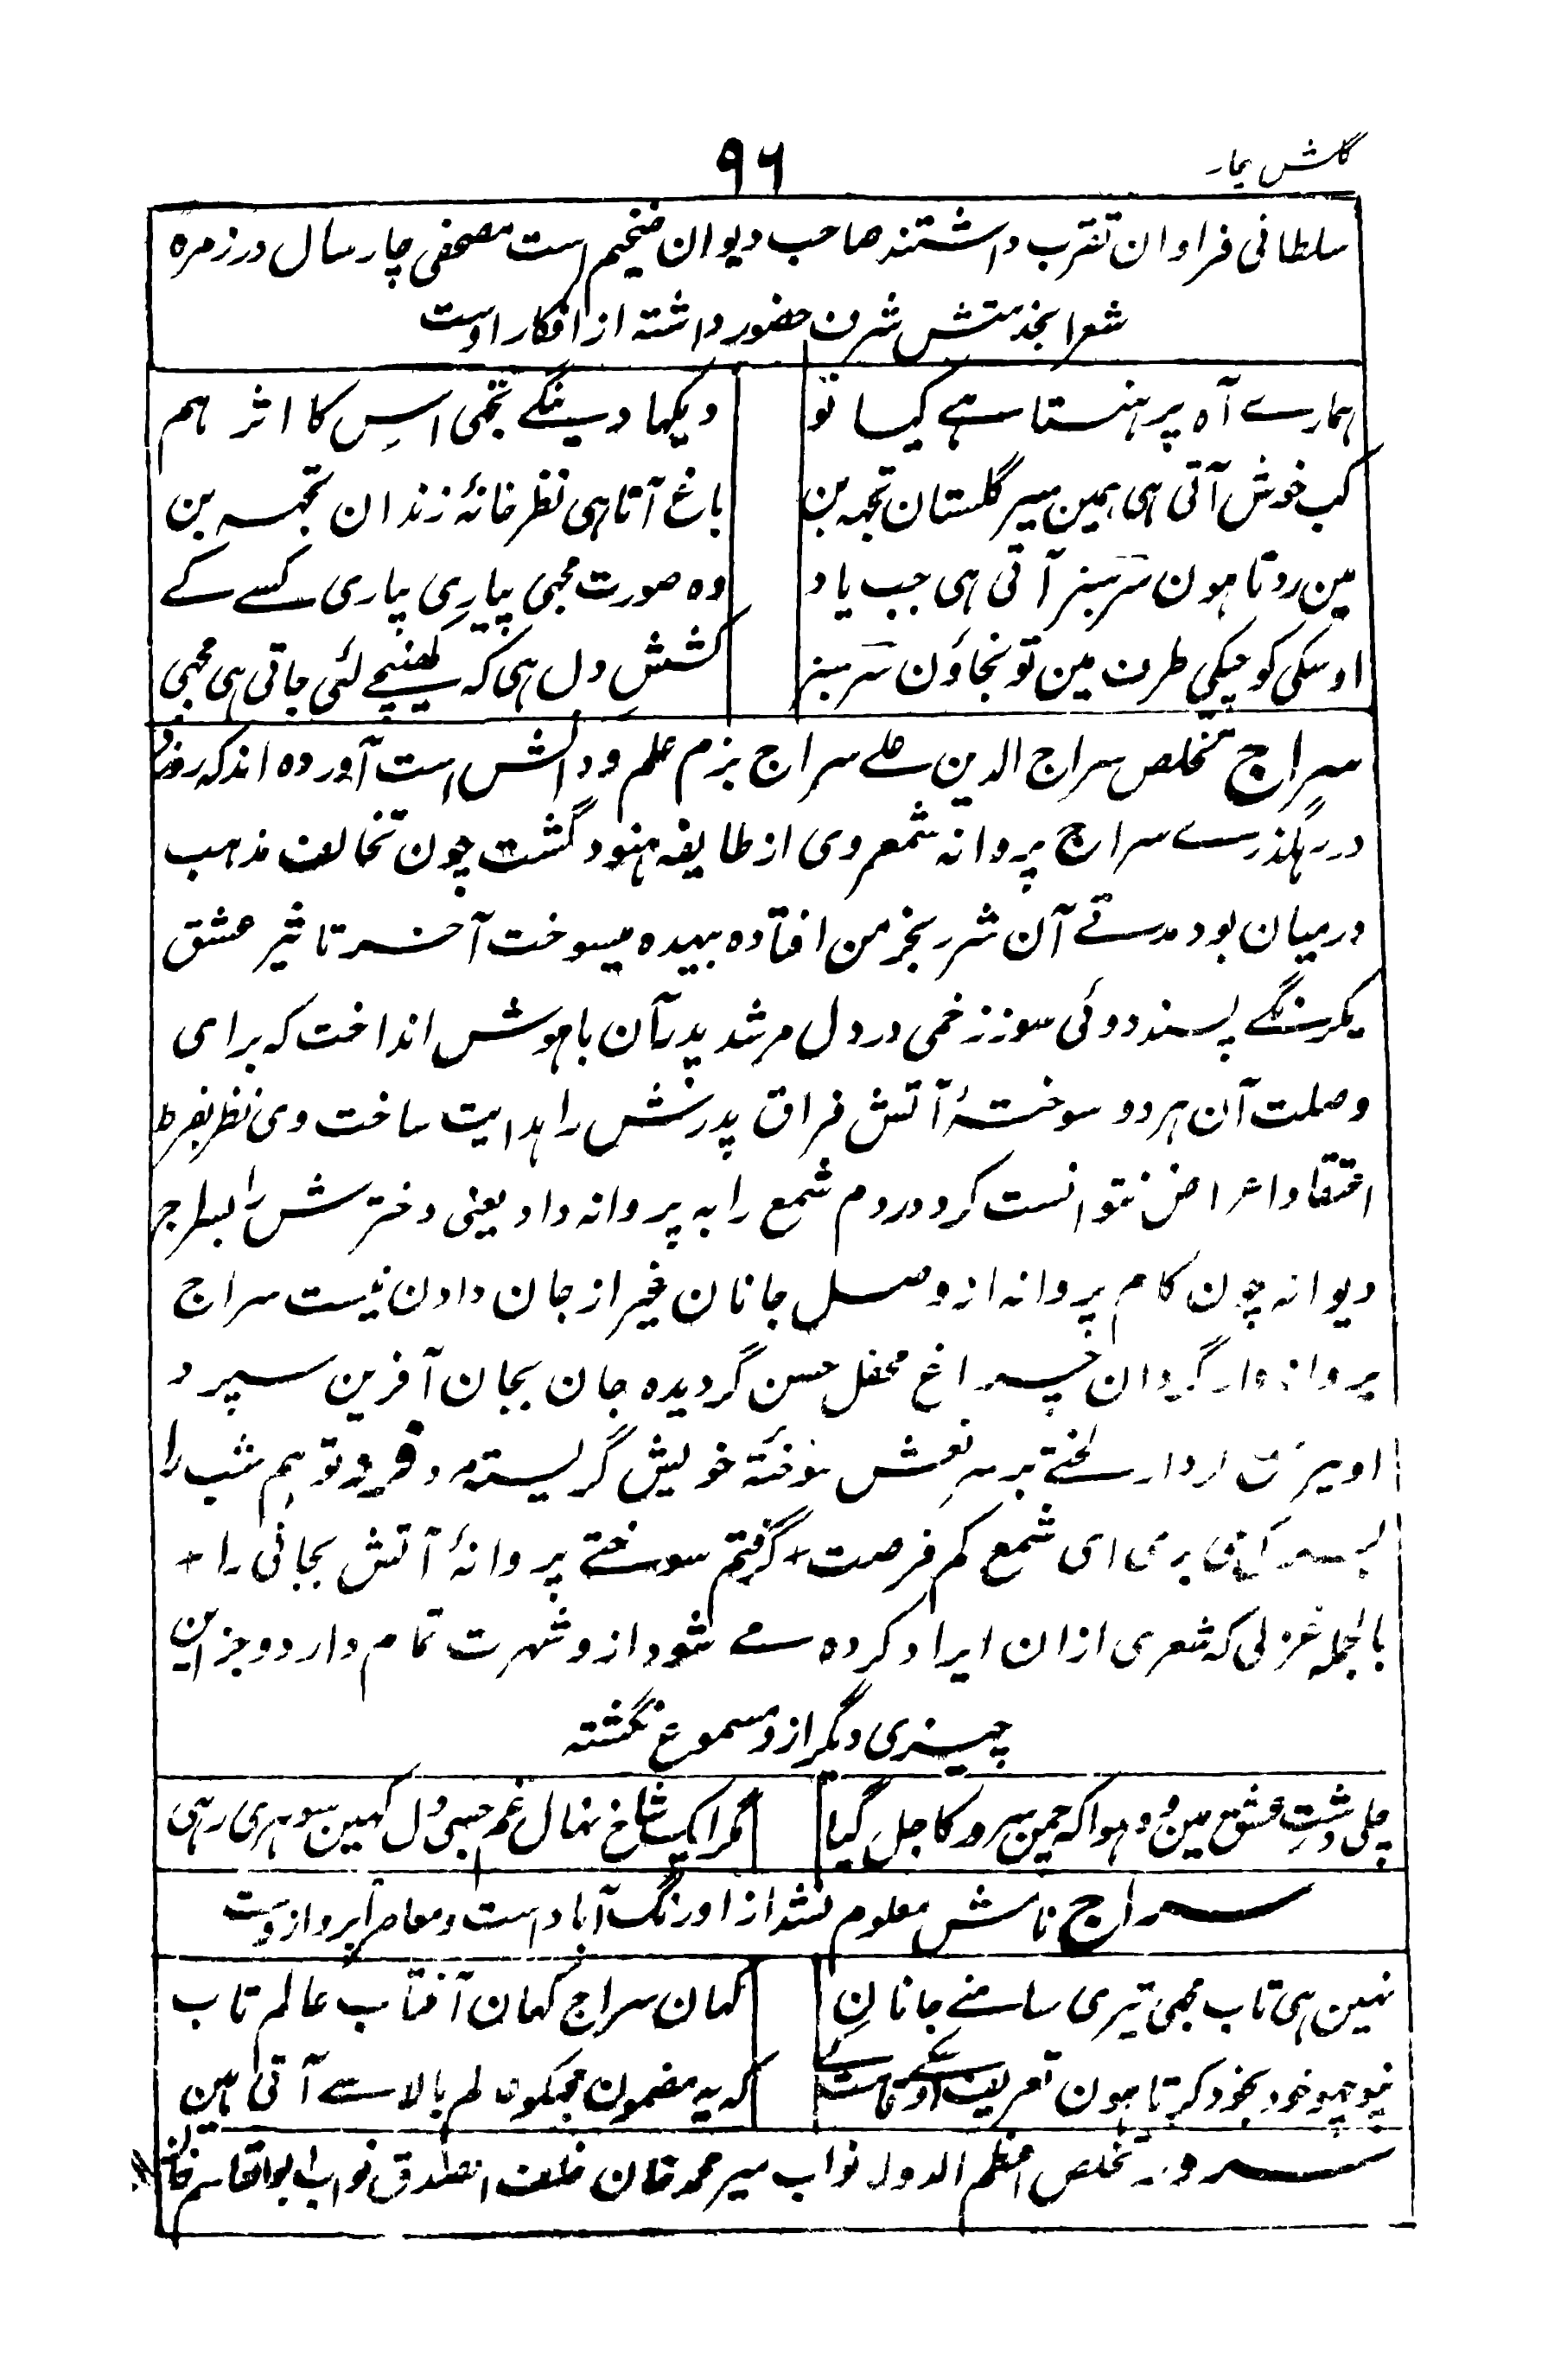 گلشن بیخار
۹۶
سلطانی فراوان تقرب داشتند صاحب دیوان ضخیم است مصحفی چار سال در زمره
شعرا بخدمتش شرف حضور داشته از افکار اوست
ہمارے آہ پر ہنستا ہے کیا تو دیکہا دینگے تجھی اسِ کا اثر ہم
کب خوش آتی ہی ہمین سیر گلستان تجہہ بن باغ آتا ہی نظر خانۂ زندان تجہہ بن
مین روتا ہون سرسبز آتی ہی جب یاد وہ صورت مجھی پیارِی پیاری کسے کے
اوسکی کوچیکی طرف مین تو نجاؤن سرسبز کششِ دل ہی کہ کھنیچے لئی جاتی ہی مجھی
سراج تخلص سراج الدین علے سراج بزم علم و دانش است آورده اند که روزی
در رہگذرے سراج پروانہ شمعروی از طایفہ ہنود گشت چون تخالف مذہب
درمیان بود مدتے آن شرر بخرمن افتاده بیہده میسوخت آخر تاثیر عشق
یکرنگے پسند دوئی سوز زخمی در دل مرشد پدر آن باہوش انداخت کہ برای
وصلت آن ہر دو سوختۂ آتش فراق پدرش را ہدایت ساخت وی نظر بفرط
اعتقاد اعراض نتوانست کرد در دم شمع را بہ پروانہ داد یعنی دخترش را بسراج
دیوانہ چون کام پروانہ از وصل جانان غیر از جان دادن نیست سراج
پروانہ وار گردان چراغ محفل حسن گردیده جان بجان آفرین سپرد
لختے بر سرِ نعش سوختۂ خویش گریستہ تو ہم شب را
بری ای شمع کم فرصت + گرفتم سوختے پروانۂ آتش بجانی را +
بالجملہ غزلی کہ شعری ازان ایراد کرده مے شود ازو شہرت تمام دارد و جز این
چیزی دیگر ازو مسموع نگشتہ
چلی دشتِ عشق مین وہ ہوا کہ چمن سرور کا جل گیا مگر ایک شاخ نہال غم جسی دل کہین سو ہری رہی
سراج نامش معلوم نشد از اورنگ آباد است و معاصر آبرو ازوست
نہین ہی تاب مجھی تیری سامنے جانانِ کہان سراج کہان آفتاب عالم تاب
نپوچہو خود بخود کرتا ہون تعریف اوسکے قامت کے کہ یہ مضمون مجکو عالم بالا سے آتی ہین
سرور تخلص اعظم الدولہ نواب میر محمد خان خلف الصدق نواب ابوالقاسم خان